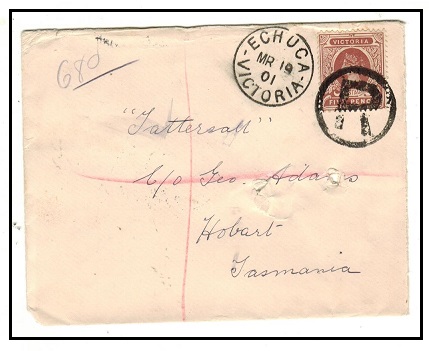 680
ECHUCA
MR 19
01
VICTORIA
VICTORIA
FIVE PENCE
R
"Tattersall"
C/o Geo. Adams
Hobart
Tasmania